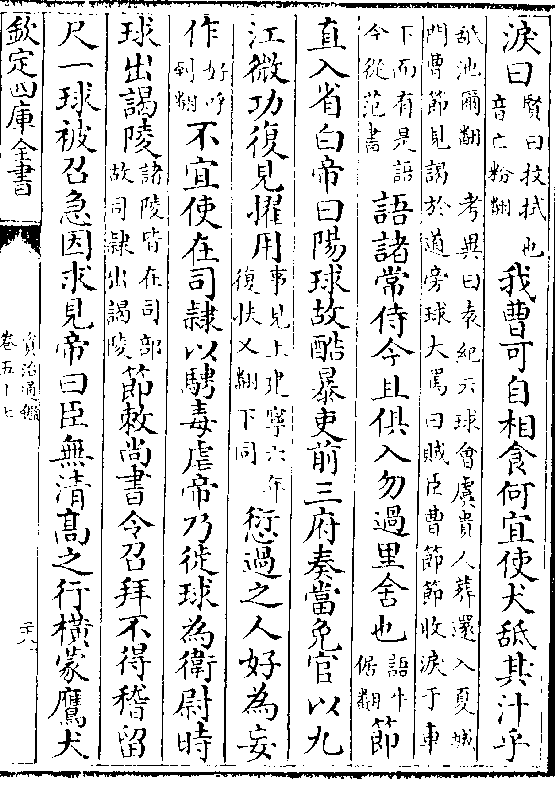 淚曰賢曰抆拭也音亡粉翻我曹可自相食何宜使犬舐其汁乎
舐池爾翻考異曰袁紀云球會虞貴人葬還入夏城門曹節見謁於道旁球大罵曰賊臣曹節節收淚于車
下而有是語今從范書語諸常侍今且俱入勿過里舍也語牛倨翻節
直入省白帝曰陽球故酷暴吏前三府奏當免官以九
江微功復見擢用事見上建寧六年復扶又翻下同愆過之人好為妄
作好呼到翻不宜使在司隸以騁毒虐帝乃徙球為衛尉時
球出謁陵諸陵皆在司部故司隸出謁陵節敕尚書令召拜不得稽留
尺一球被召急因求見帝曰臣無清髙之行橫蒙鷹犬
欽定四庫全書
資治通鑑
卷五十七